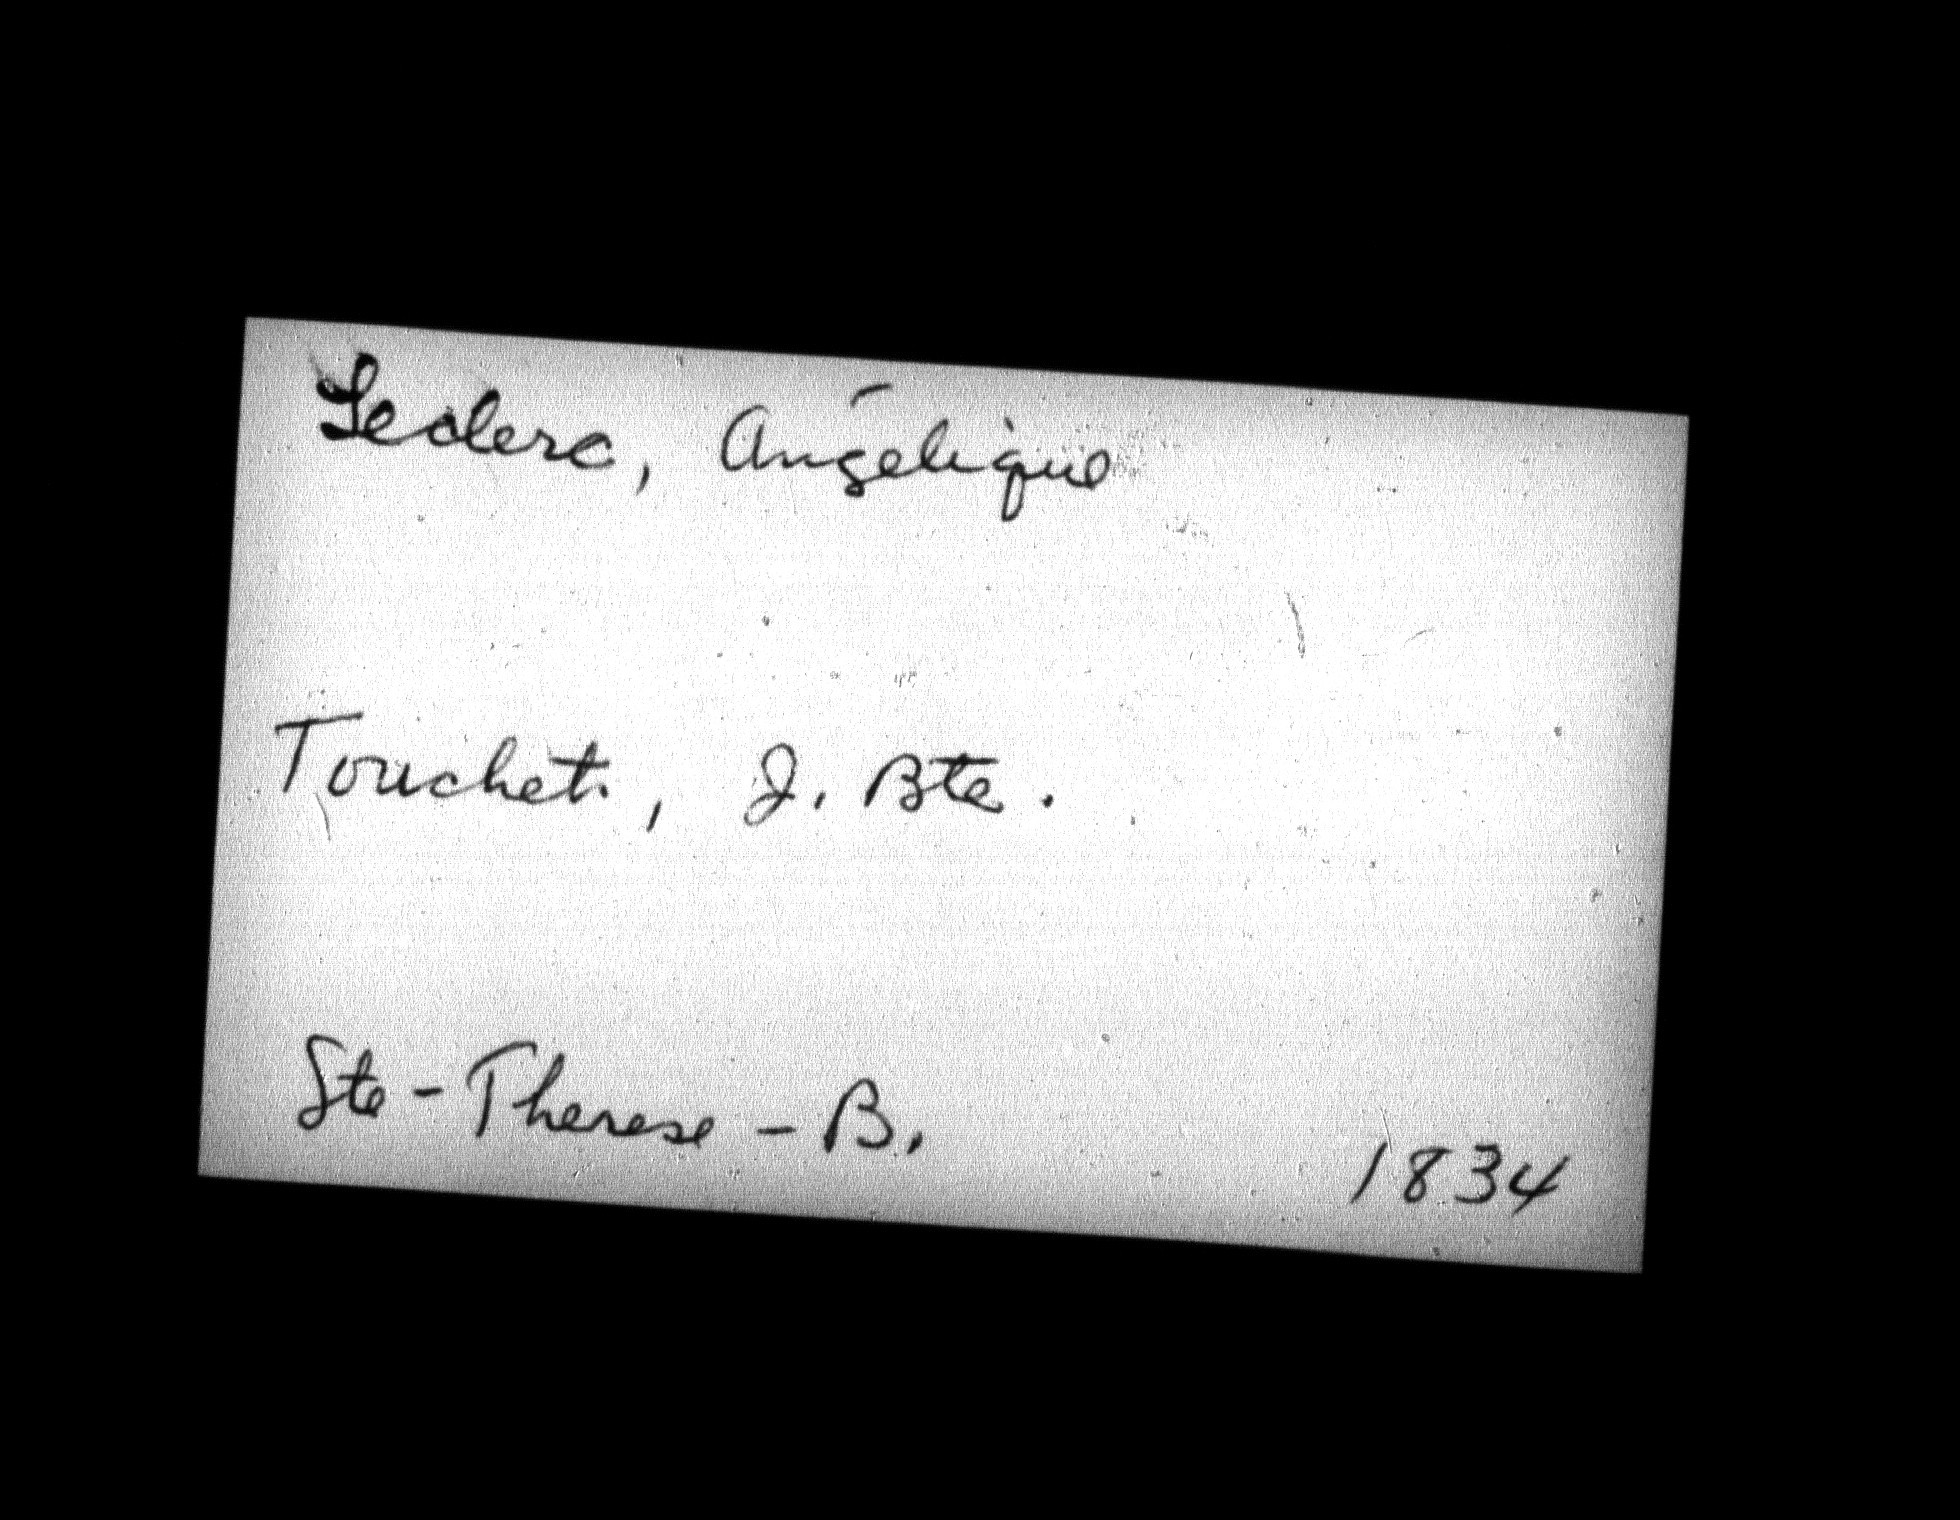 Leclerc, Angélique
Touchet, J. Bte.
Ste-Therese-B.
1834